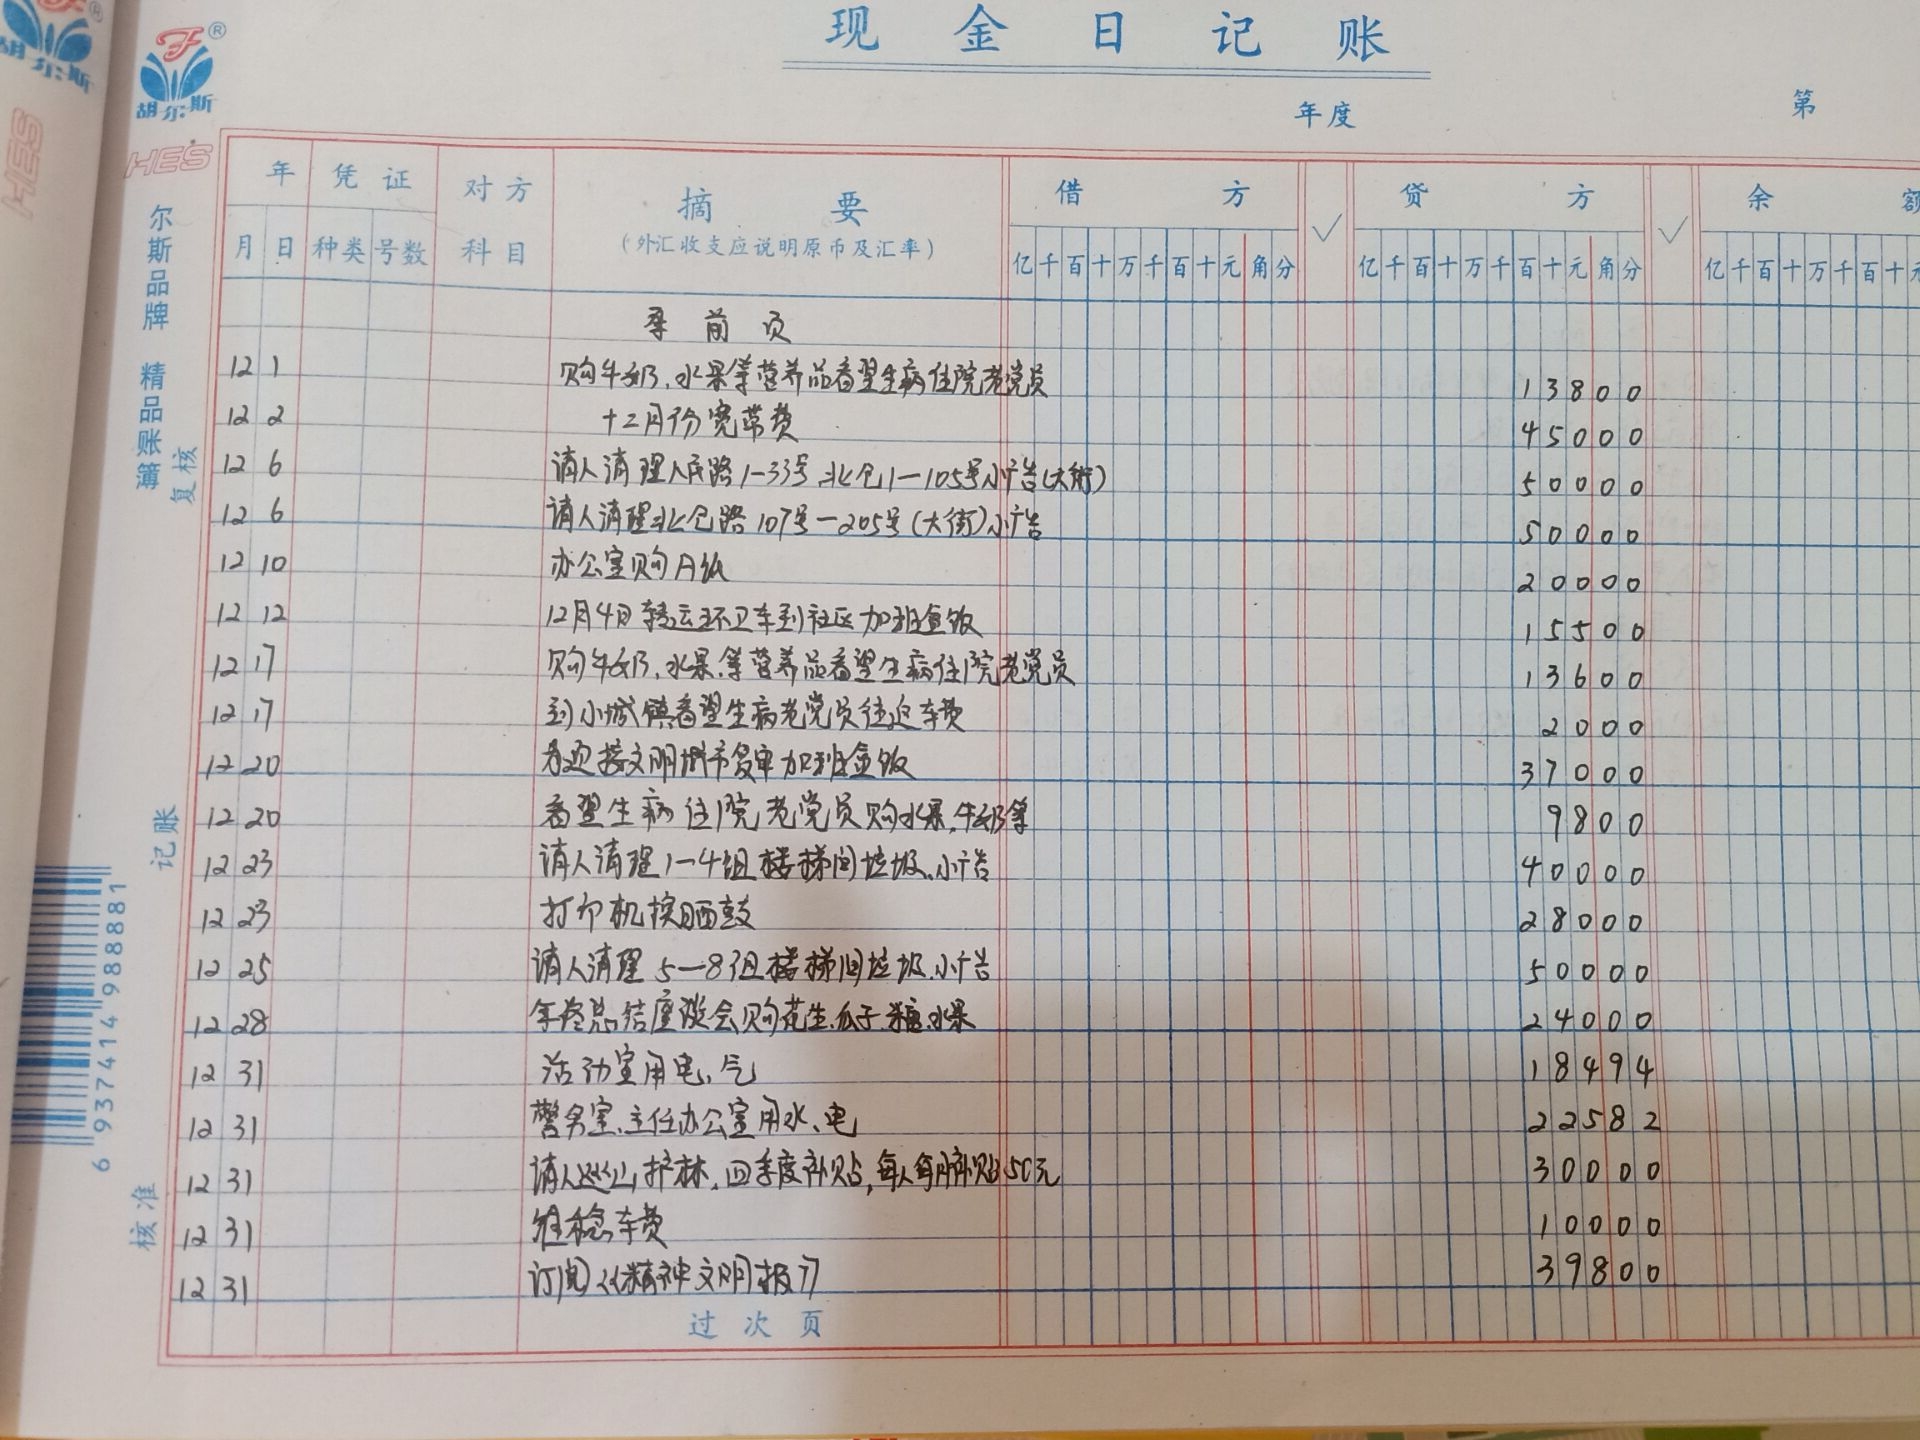 现金日记账
年度 第
胡尔斯 胡尔斯
HES HES
尔斯品牌 精品账簿
复核
记账
核准
6 937414 988881
年 凭证 对方 摘要 借方 贷方 余额
月 日 种类 号数 科目 (外汇收支应说明原币及汇率) 亿千百十万千百十元角分 亿千百十万千百十元角分 亿千百十万千百十元
承前页
12 1 购牛奶、水果等营养品看望生病住院老党员 13800
12 2 十二月份宽带费 45000
12 6 请人清理人民路1-33号、北仓1-105号小广告(大街) 50000
12 6 请人清理北仓路107号-205号(大街)小广告 50000
12 10 办公室购A纸 20000
12 12 12月4日转运环卫车到社区加班盒饭 15500
12 17 购牛奶、水果、等营养品看望生病住院老党员 13600
12 17 到小城镇看望生病老党员往返车费 2000
12 20 为迎接文明城市复审加班盒饭 37000
12 20 看望生病住院老党员购水果、牛奶等 9800
12 23 请人清理1-4组楼梯间垃圾、小广告 40000
12 23 打印机换晒鼓 28000
12 25 请人清理5-8组楼梯间垃圾、小广告 50000
12 28 年终总结座谈会购花生、瓜子、糖、水果 24000
12 31 活动室用电、气 18494
12 31 警务室、主任办公室用水、电 22582
12 31 请人巡山护林,四季度补贴,每人每月补贴50元 30000
12 31 维稳车费 10000
12 31 订阅《精神文明报》 39800
过次页